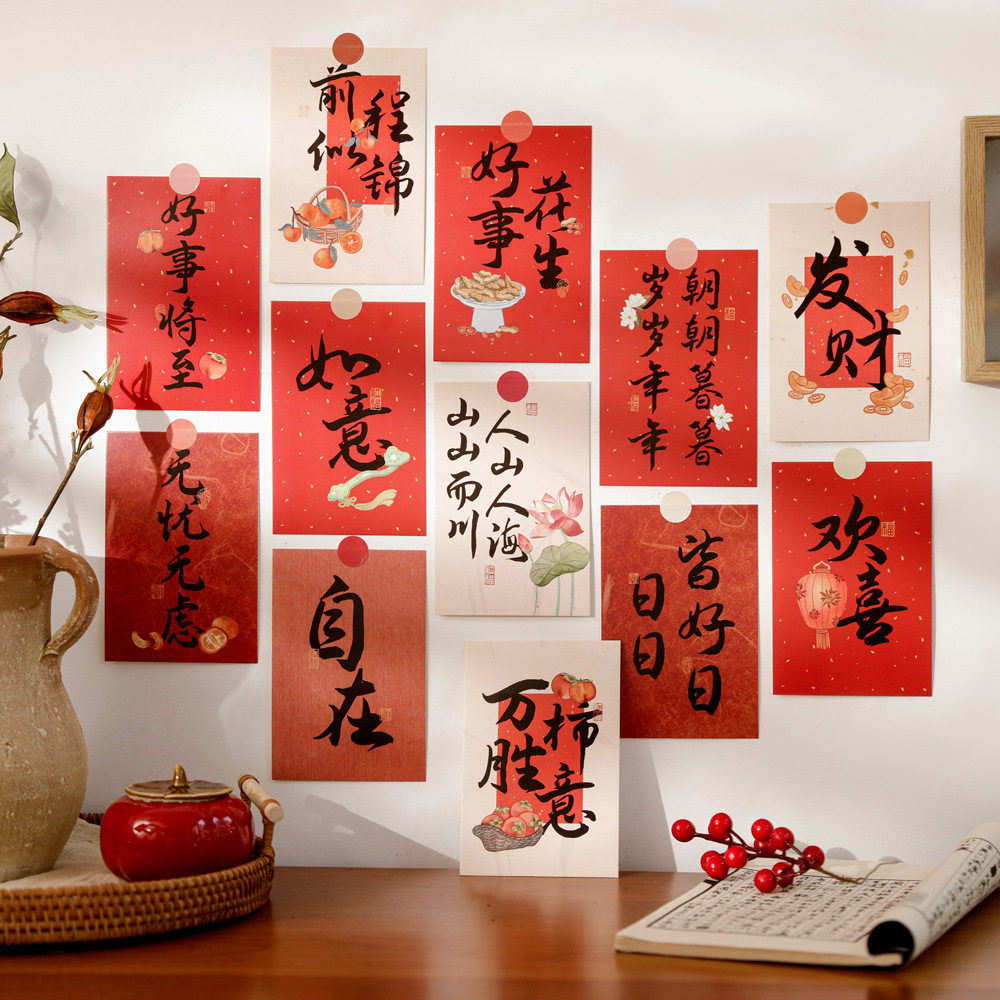 前程
似锦
好事
花生
好事将至
发财
朝朝暮暮
岁岁年年
如意
人山人海
山山而川
无忧无虑
欢喜
日日
皆好日
自在
万柿
胜意